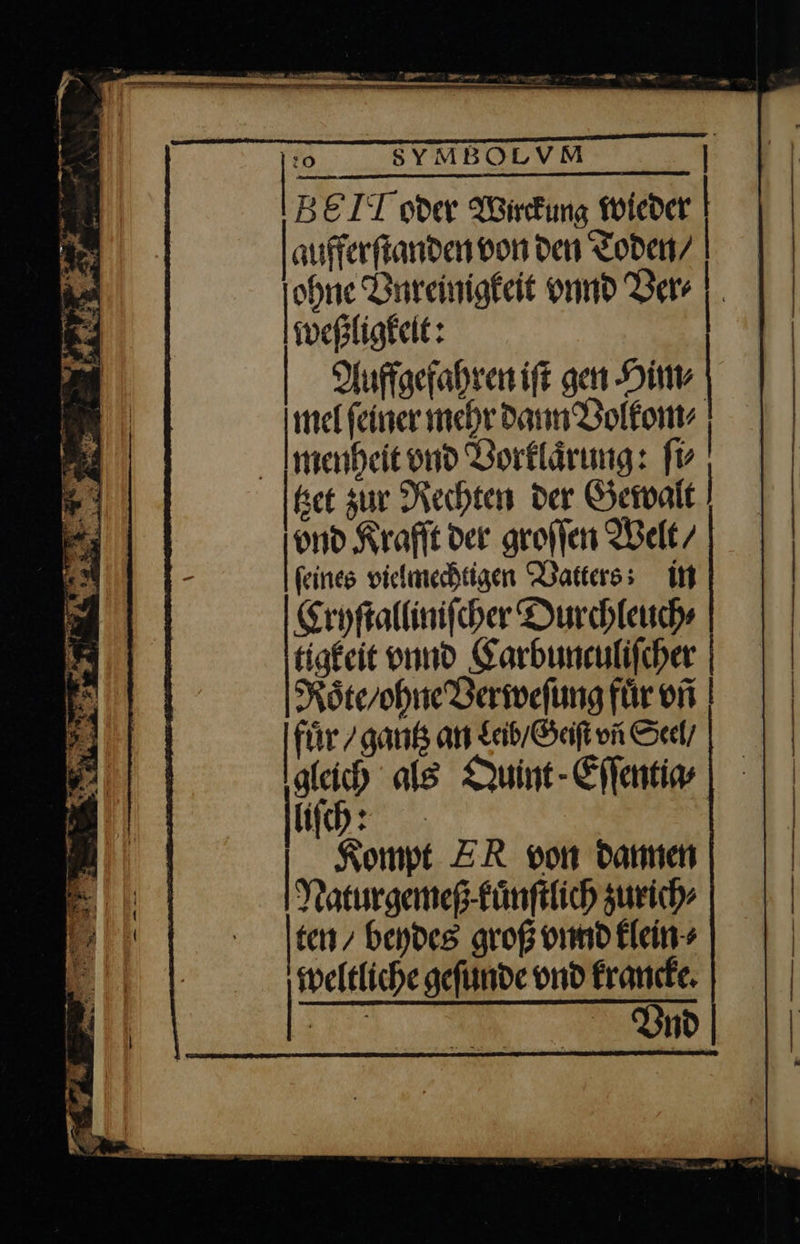 20 SYMBOLVM
BEIT oder Wirckung wieder
aufferſtanden von den Toden/
ohne Vnreinigkeit vnnd Ver⸗
weßligkeit:
Auffgefahren iſt gen Him⸗
mel ſeiner mehr dann Volkom⸗
menheit vnd Vorklaͤrung: ſi⸗
tzet zur Rechten der Gewalt
vnd Krafft der groſſen Welt/
ſeines vielmechtigen Vatters: in
Cryſtalliniſcher Durchleuch⸗
tigkeit vnnd Carbunculiſcher
Roͤte/ohne Verweſung fuͤr vñ
fuͤr / gantz an Leib/Geiſt vñ Seel/
gleich als Quint-Eſſentia⸗
liſch:
Kompt ER von dannen
Naturgemeß-kuͤnſtlich zurich⸗
ten / beydes groß vnnd klein⸗
weltliche geſunde vnd krancke.
Vnd